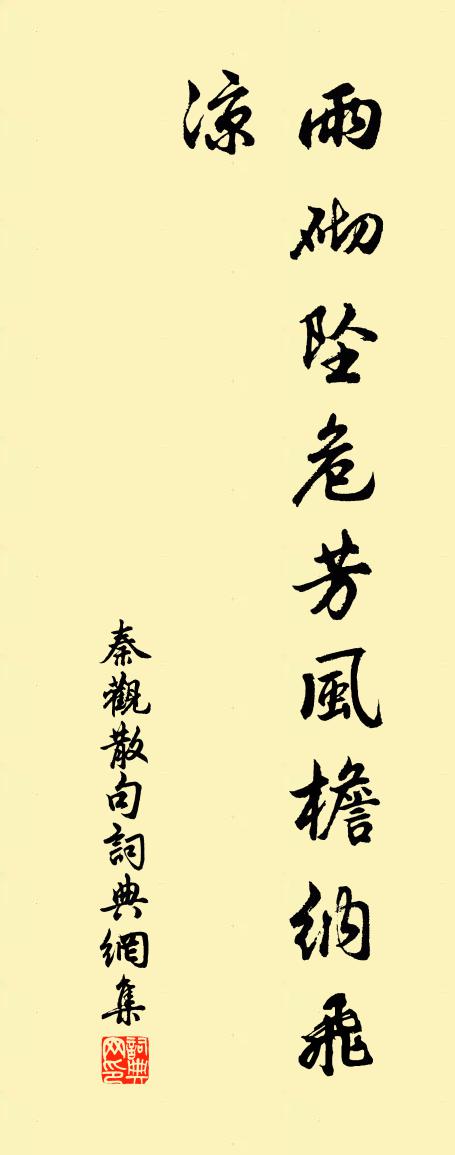 雨砌墜危芳風檐納飛
涼
秦觀散句詞典網集
詞典网印